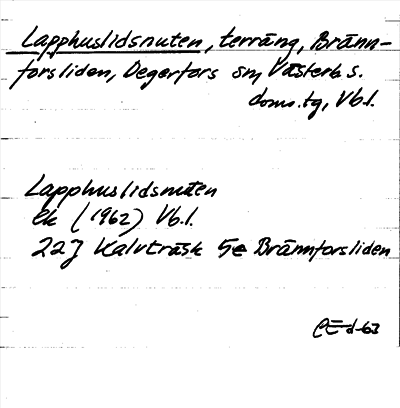 Lapphuslidsnuten, terräng, Bränn-
forsliden, Degerfors sn, Västerb. s.
doms.tg, Vb.l.
Lapphuslidsnuten
ek (1962) Vb.l.
22J Kalvträsk 5e Brännforsliden